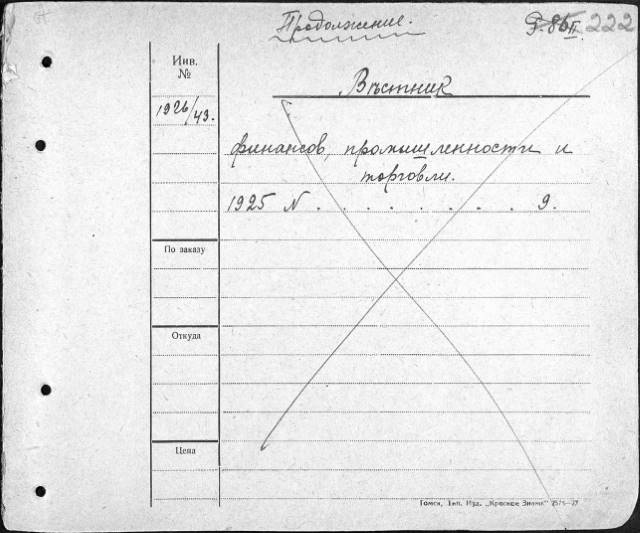 Продолжение.
222
Инв.
№
Вѣстник
1926/43.
финансов, промышленности и
торговли.
1925 N . . . . . . . . 9.
По заказу
Откуда
Цена
Томск, Тип. Изд. „Красное Знамя"